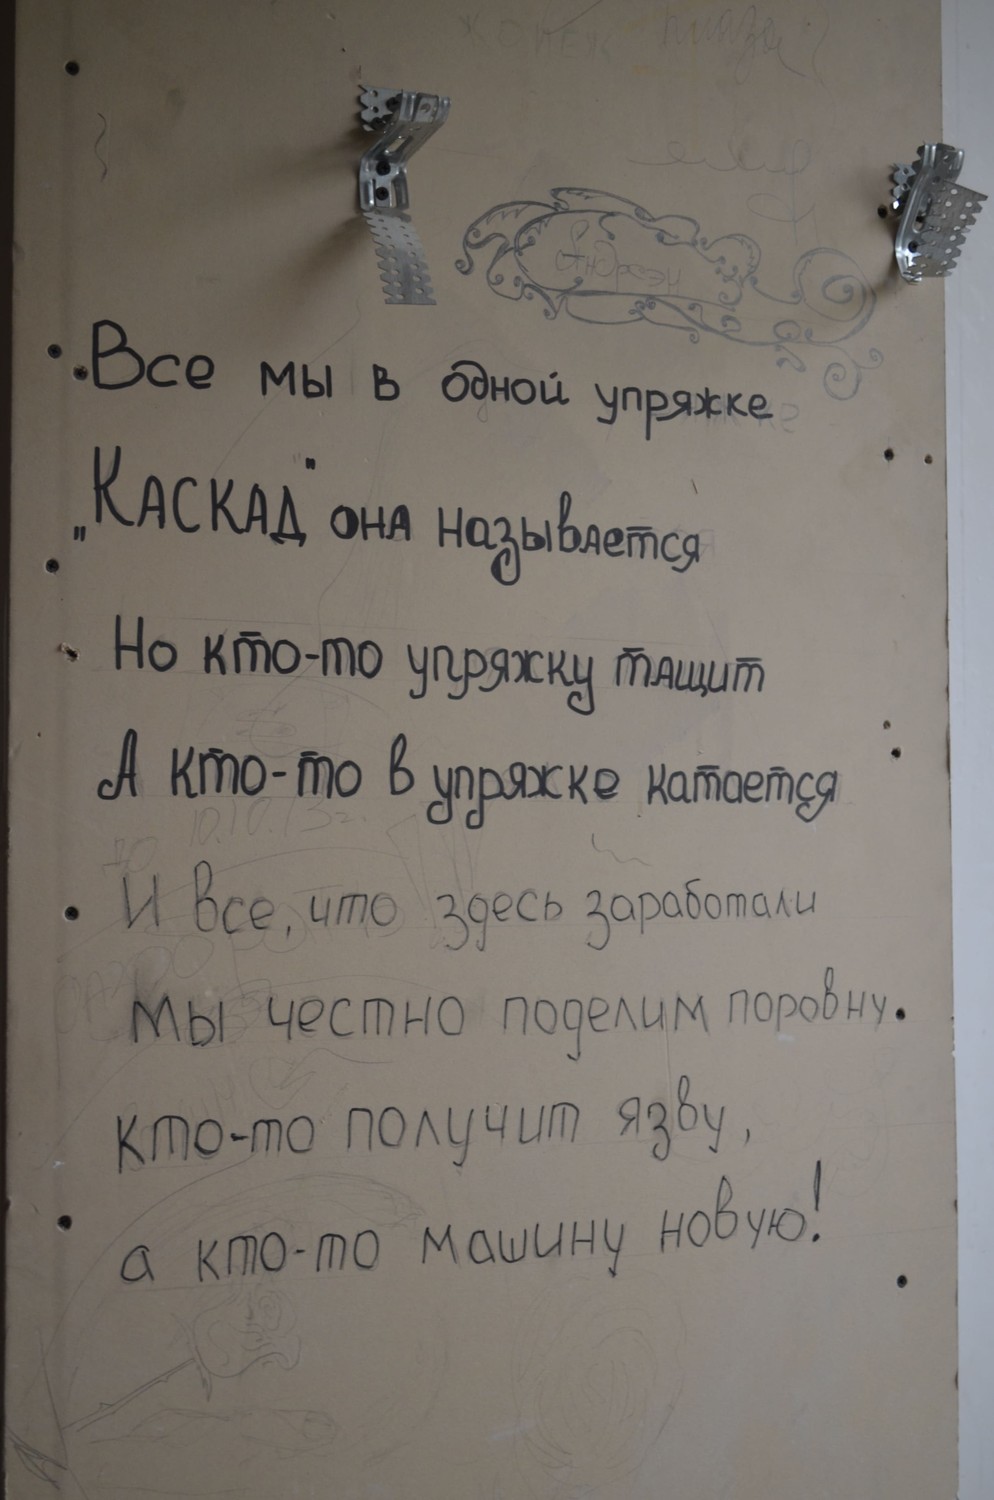 Все мы в одной упряжке
„КАСКАД" она называется
Но кто-то упряжку тащит
А кто-то в упряжке катается
10.10.13г.
И все, что здесь заработали
мы честно поделим поровну.
кто-то получит язву,
а кто-то машину новую!